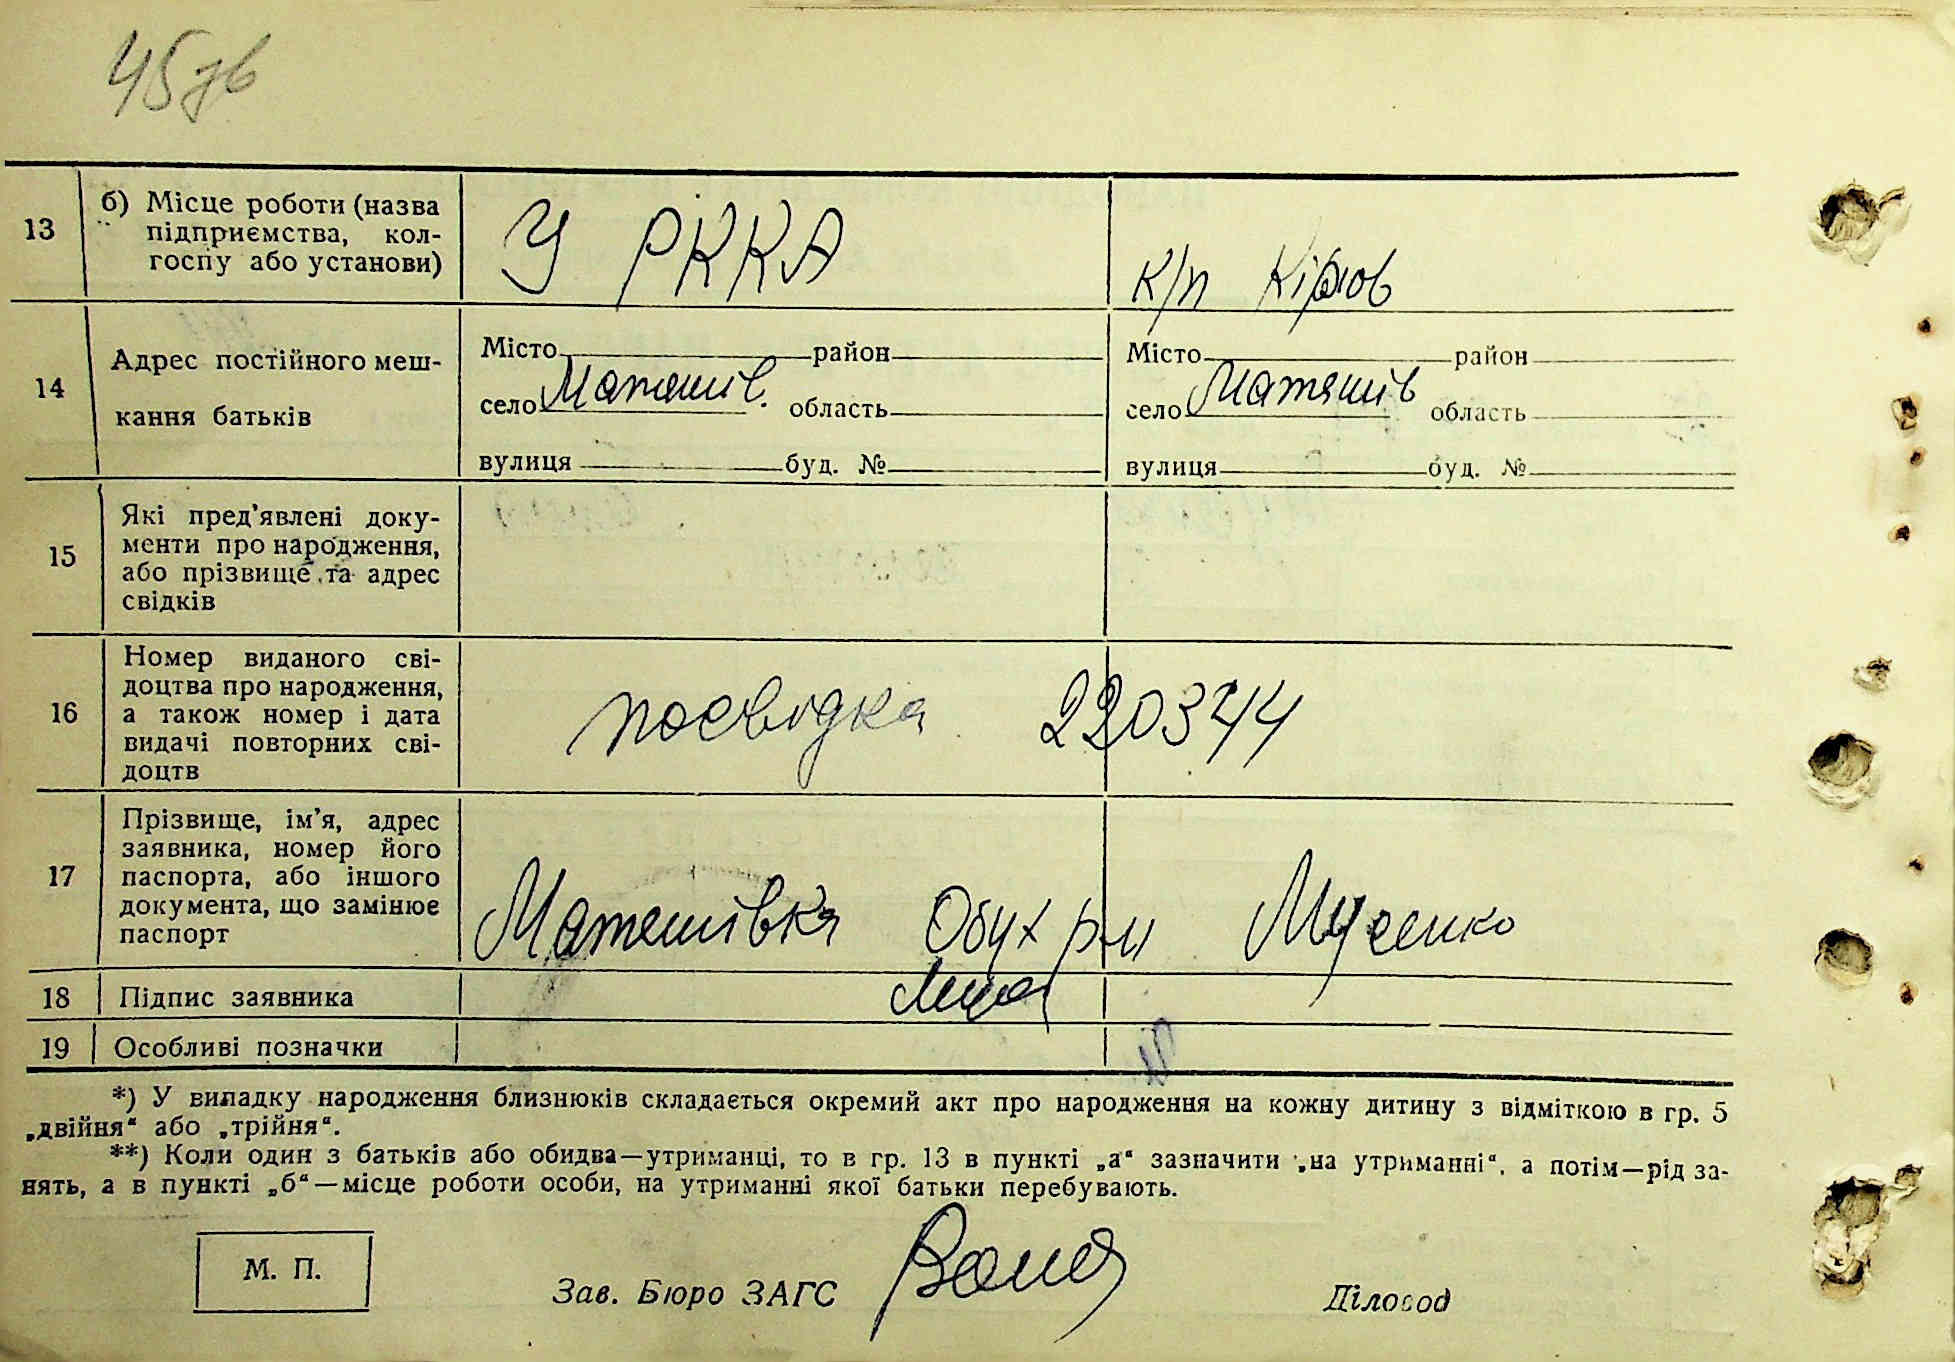 45зв
13
б) Місце роботи (назва
підприємства, кол-
госпу або установи)
У РККА
к/п Кіров
14
Адрес постійного меш-
кання батьків
Місто район
село Матяшів. область
вулиця буд. №
Місто район
село Матяшів область
вулиця буд. №
15
Які пред'явлені доку-
менти про народження,
або прізвище та адрес
свідків
16
Номер виданого сві-
доцтва про народження,
а також номер і дата
видачі повторних сві-
доцтв
посвідка 220344
17
Прізвище, ім'я, адрес
заявника, номер його
паспорта, або іншого
документа, що замінює
паспорт
Матяшівка Обух р-н Мусенко
18 Підпис заявника
19 Особливі позначки
*) У випадку народження близнюків складається окремий акт про народження на кожну дитину з відміткою в гр. 5
„двійня“ або „трійня“.
**) Коли один з батьків або обидва—утриманці, то в гр. 13 в пункті „а“ зазначити „на утриманні“, а потім—рід за-
нять, а в пункті „б“—місце роботи особи, на утриманні якої батьки перебувають.
М. П.
Зав. Бюро ЗАГС
Діловод